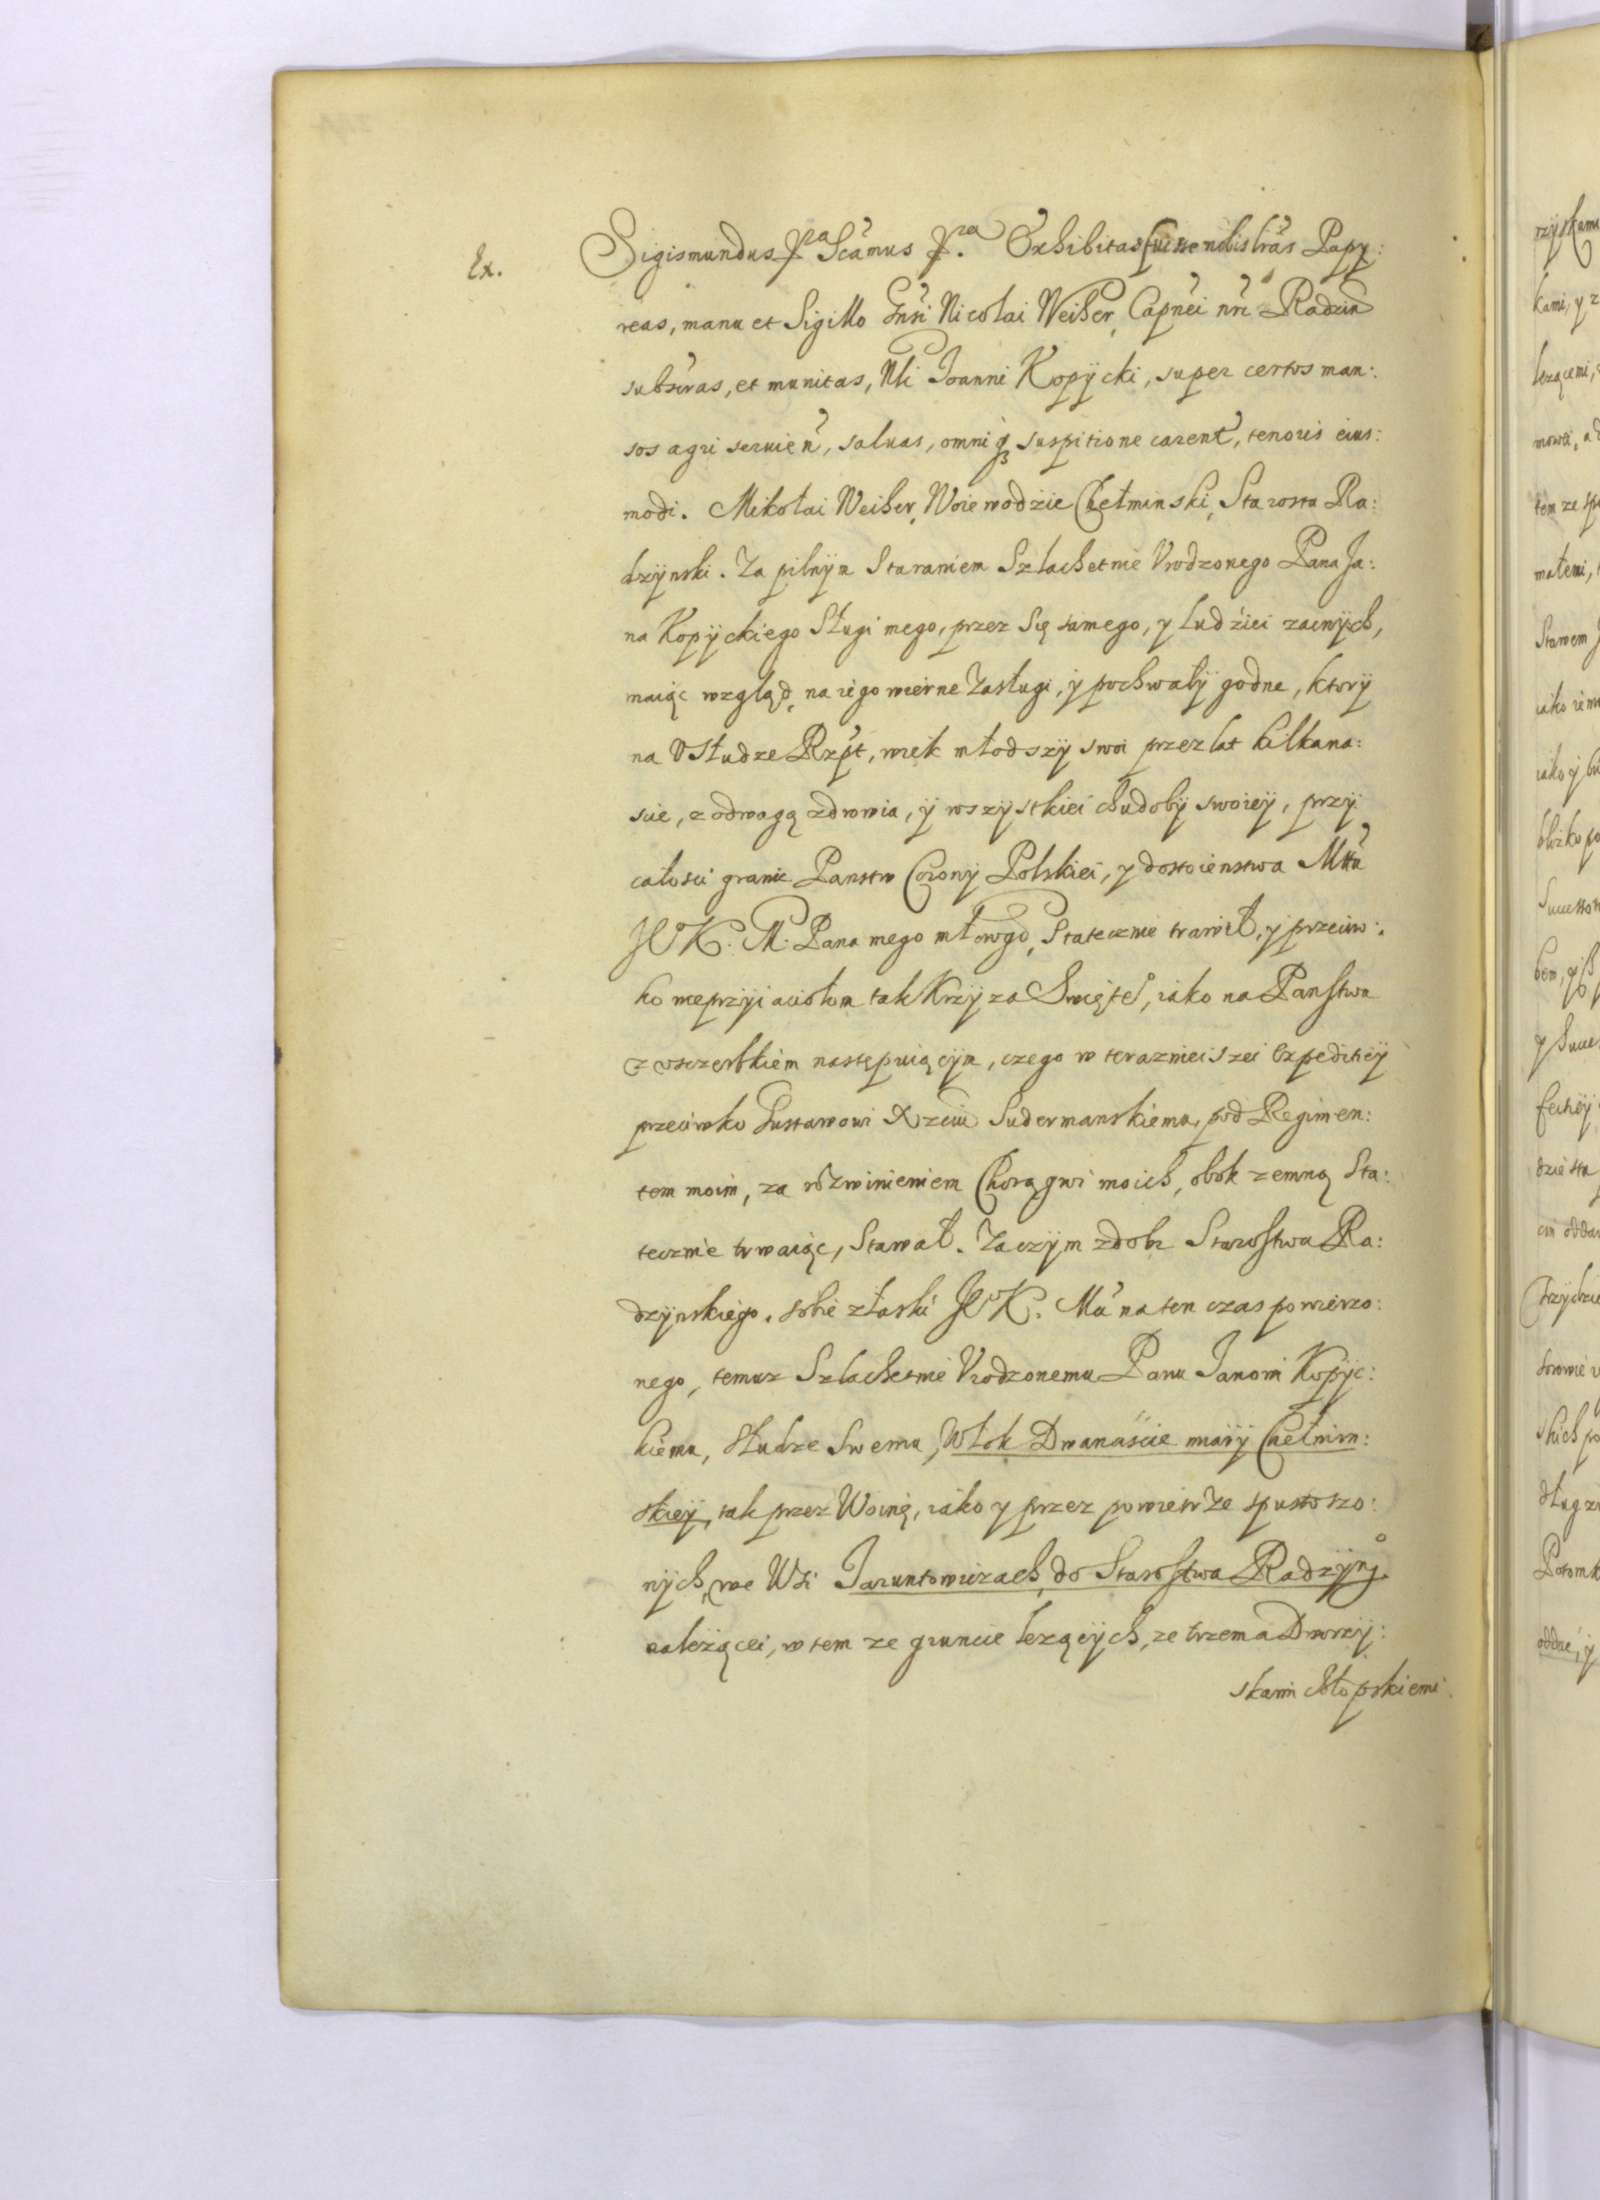 Ex.
Sigismundus Scămus Exhibitas fuisse nobis lrăs Papy:
reas, manu et Sigillo Gnsi Nicolai Weiher, Capnei nri Radzin
subscras, et munitas, Nli Joanni Kopycki, super certos man:
sos agri servien, saluas, omniq suspitione carent, tenoris eius:
modi. Mikołai Weiher, Woiewodzie Chełminski, Starosta Ra:
dzynski. Za pilnym Staraniem Szlachetnie Vrodzonego Pana Ja:
na Kopyckiego Sługi mego, przez Się samego, y ludźiei zacnych,
maiąc wzgląd, na iego wierne Zasługi, y pochwały godne, ktory
na Usłudze Rzpt, wiek młodszy swoi przez lat kilkana:
scie, z odwagą zdrowia, y wszystkiei chudoby swoiey, przy
całosci granic Panstw Corony Polskiei, y dostoienstwa Mttu
JE K. M. Pana mego młowgo, Statecznie trawił, y przeciw:
ko nieprzyiaciołom tak Krzyża Swięte, iako na Panstwa
z vszczerbkiem następuiącym, czego w teraznieiszei Expeditiey
przeciwko Gustawowi Xzciu Sudermanskiemu, pod Regimen:
tem moim, za rozwinieniem Chorągwi moich, obok zemną Sta:
tecznie trwaiąc, Stawał. Zaczym zdobr Starostwa Ra:
dzynskiego, sobie złaski JE K. Mci na ten czas powierzo:
nego, temuz Szlachetnie Vrodzonemu Panu Janowi Kopyc:
kiemu, Słudze Swemu, Włok Dwanaście miary Chełmin:
skiey, tak przez Woinę, iako y przez powietrze spustoszo:
nych, we Wsi Jaruntowicach, do Starostwa Radzyng.
należącei, w tem ze gruncie leżących, ze trzema Dworzy:
skami chłopskiemi.